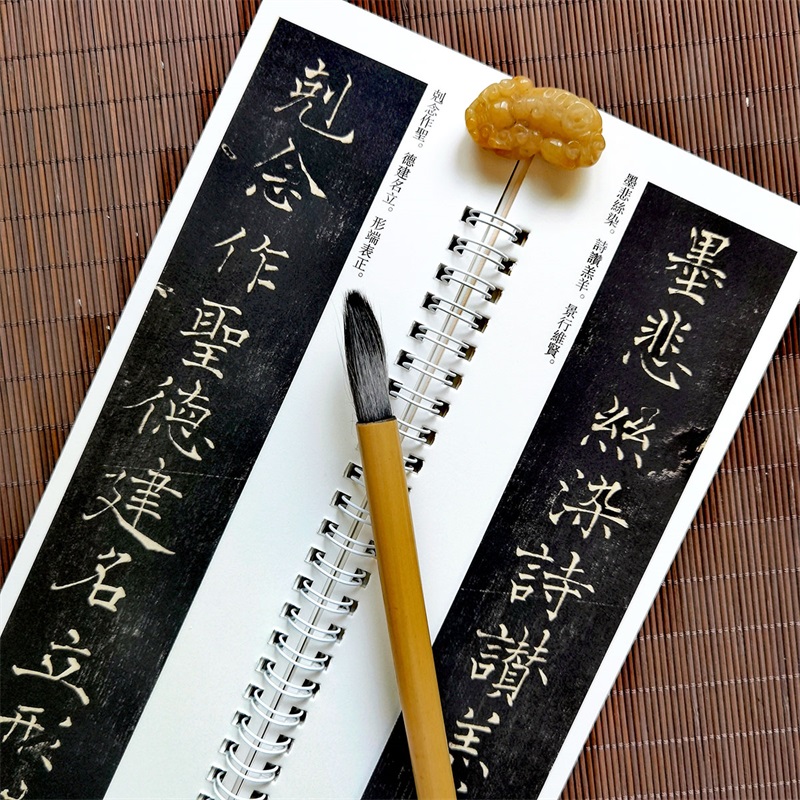 墨悲絲染詩讚羔
墨悲絲染。詩讚羔羊。景行維賢。
剋念作聖。德建名立。形端表正。
剋念作聖德建名立形